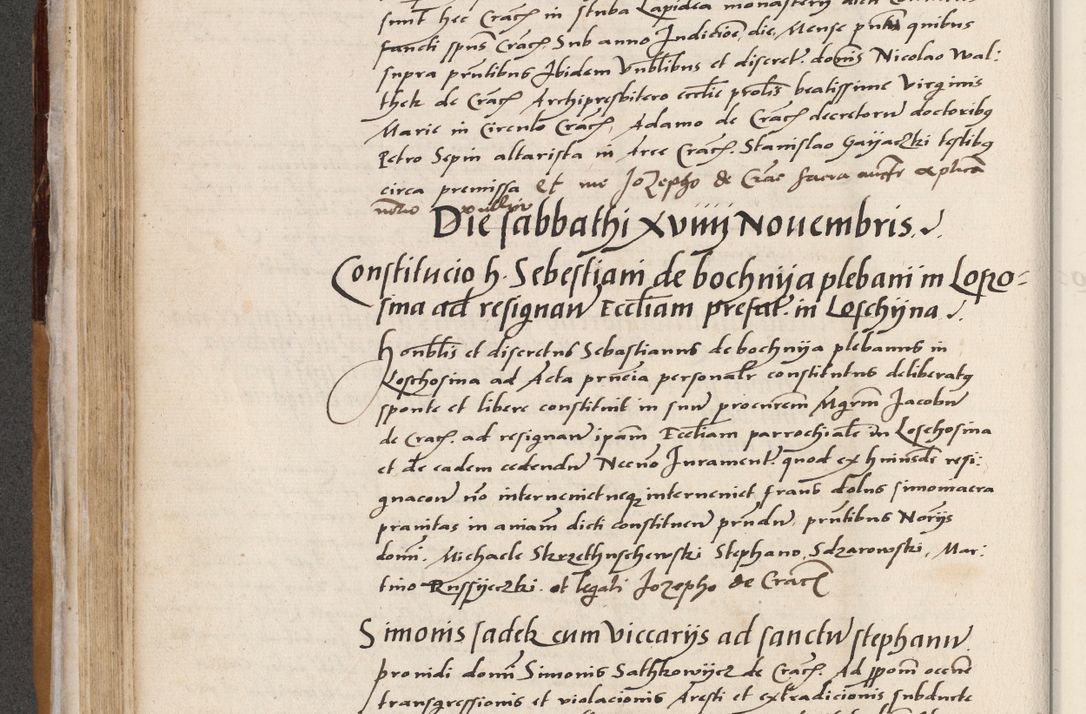 sunt hec Crac in stuba Lapidea monasterij dicti
sancti spus Crac Sub anno Indicioe, die, Mense pntis quibus
supra pntibus Ibidem Vnblibus et discret. domis Nicolao Wal:
thek de Crac Archipresbitero ecclie prolis beatissime virginis
Marie in Circulo Crac, Adamo de Crac decretoru doctoribus
Petro Sepin altarista in Arce Crac. Stanislao Gaijaczki testibus
circa premissa Et me Jozepho de Crac sacra auctte aplica
notario publico
Die sabbathi xviiij Nouembris.
Constitucio h. Sebestiani de bochnija plebani in Lopo=
sina ad resignanu Eccliam prefat. in Loschijna.
Honblis et discretus Sebastianus de bochnija plebanus in
Loschosina ad Acta pncia personalr constitutus deliberatus
sponte et libere constituit in suu procurem Mgrm Jacobu
de Crac. ad resignanu ipam Eccliam parrochiale in Loschosina
et de eadem cedendu Necno Jurament. quod ex huiusde resi:
gnacoe no interuenit neq interueniet fraus dolus simoniaca
prauitas in aniam dicti constituen prndu, pntibus Norijs
domi. Michaele Skrzethuschewski Stephano, Sdzarowski, Mar:
tino Russijeczki. et legali Jozepho de Crac
Simonis sadek cum viccarijs ad sanctu stephanu.
prouidi domi Simonis Sathkowijcz de Crac. Ad ppom occne
transgressionis et violacionis Aresti et extradicionis subducte